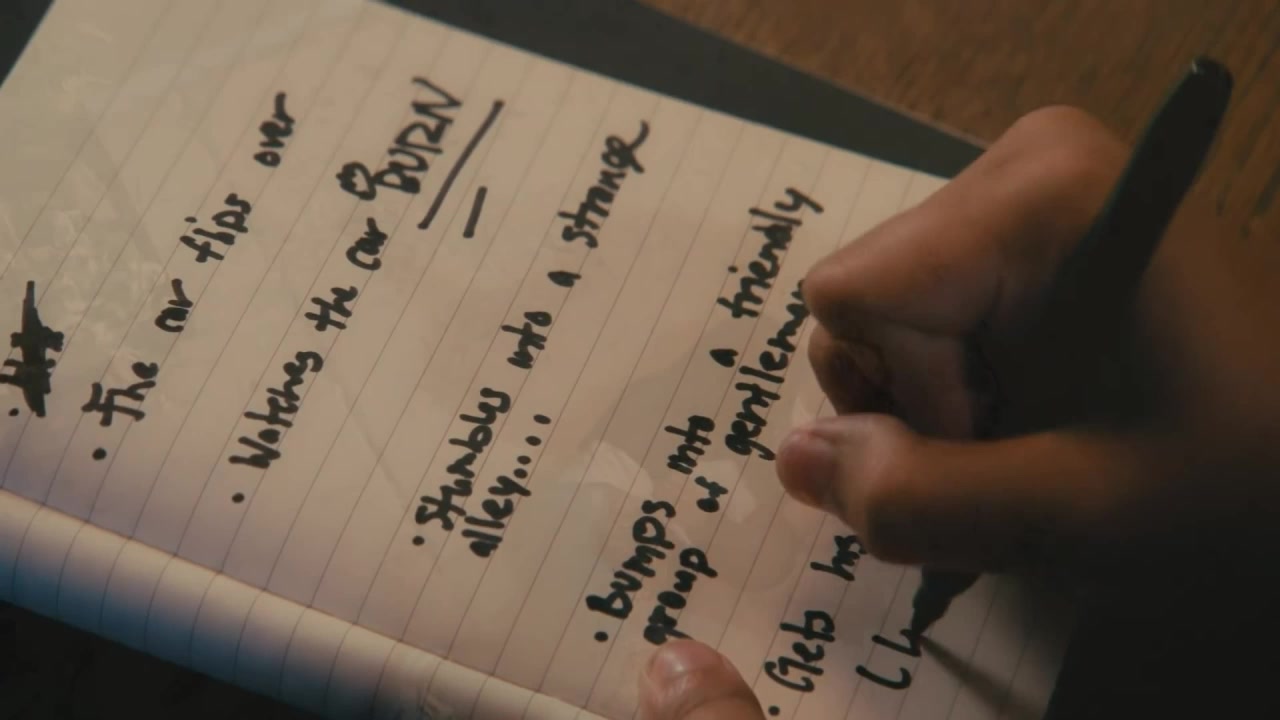 • The car flips over
• Watches the car BURN
• Stumbles into a strange
alley....
• Bumps into a friendly
group of gentlemen
• Gets his